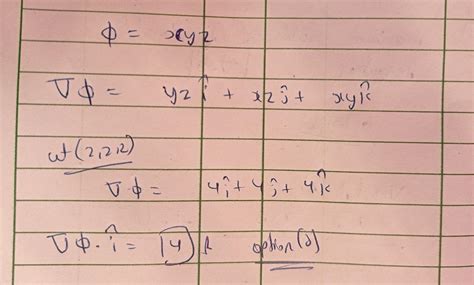 ϕ = xyz
∇ϕ = yz î + xz ĵ + xy k̂
at (2,2,2)
∇ϕ = 4 î + 4 ĵ + 4 k̂
∇ϕ · î = 4 option